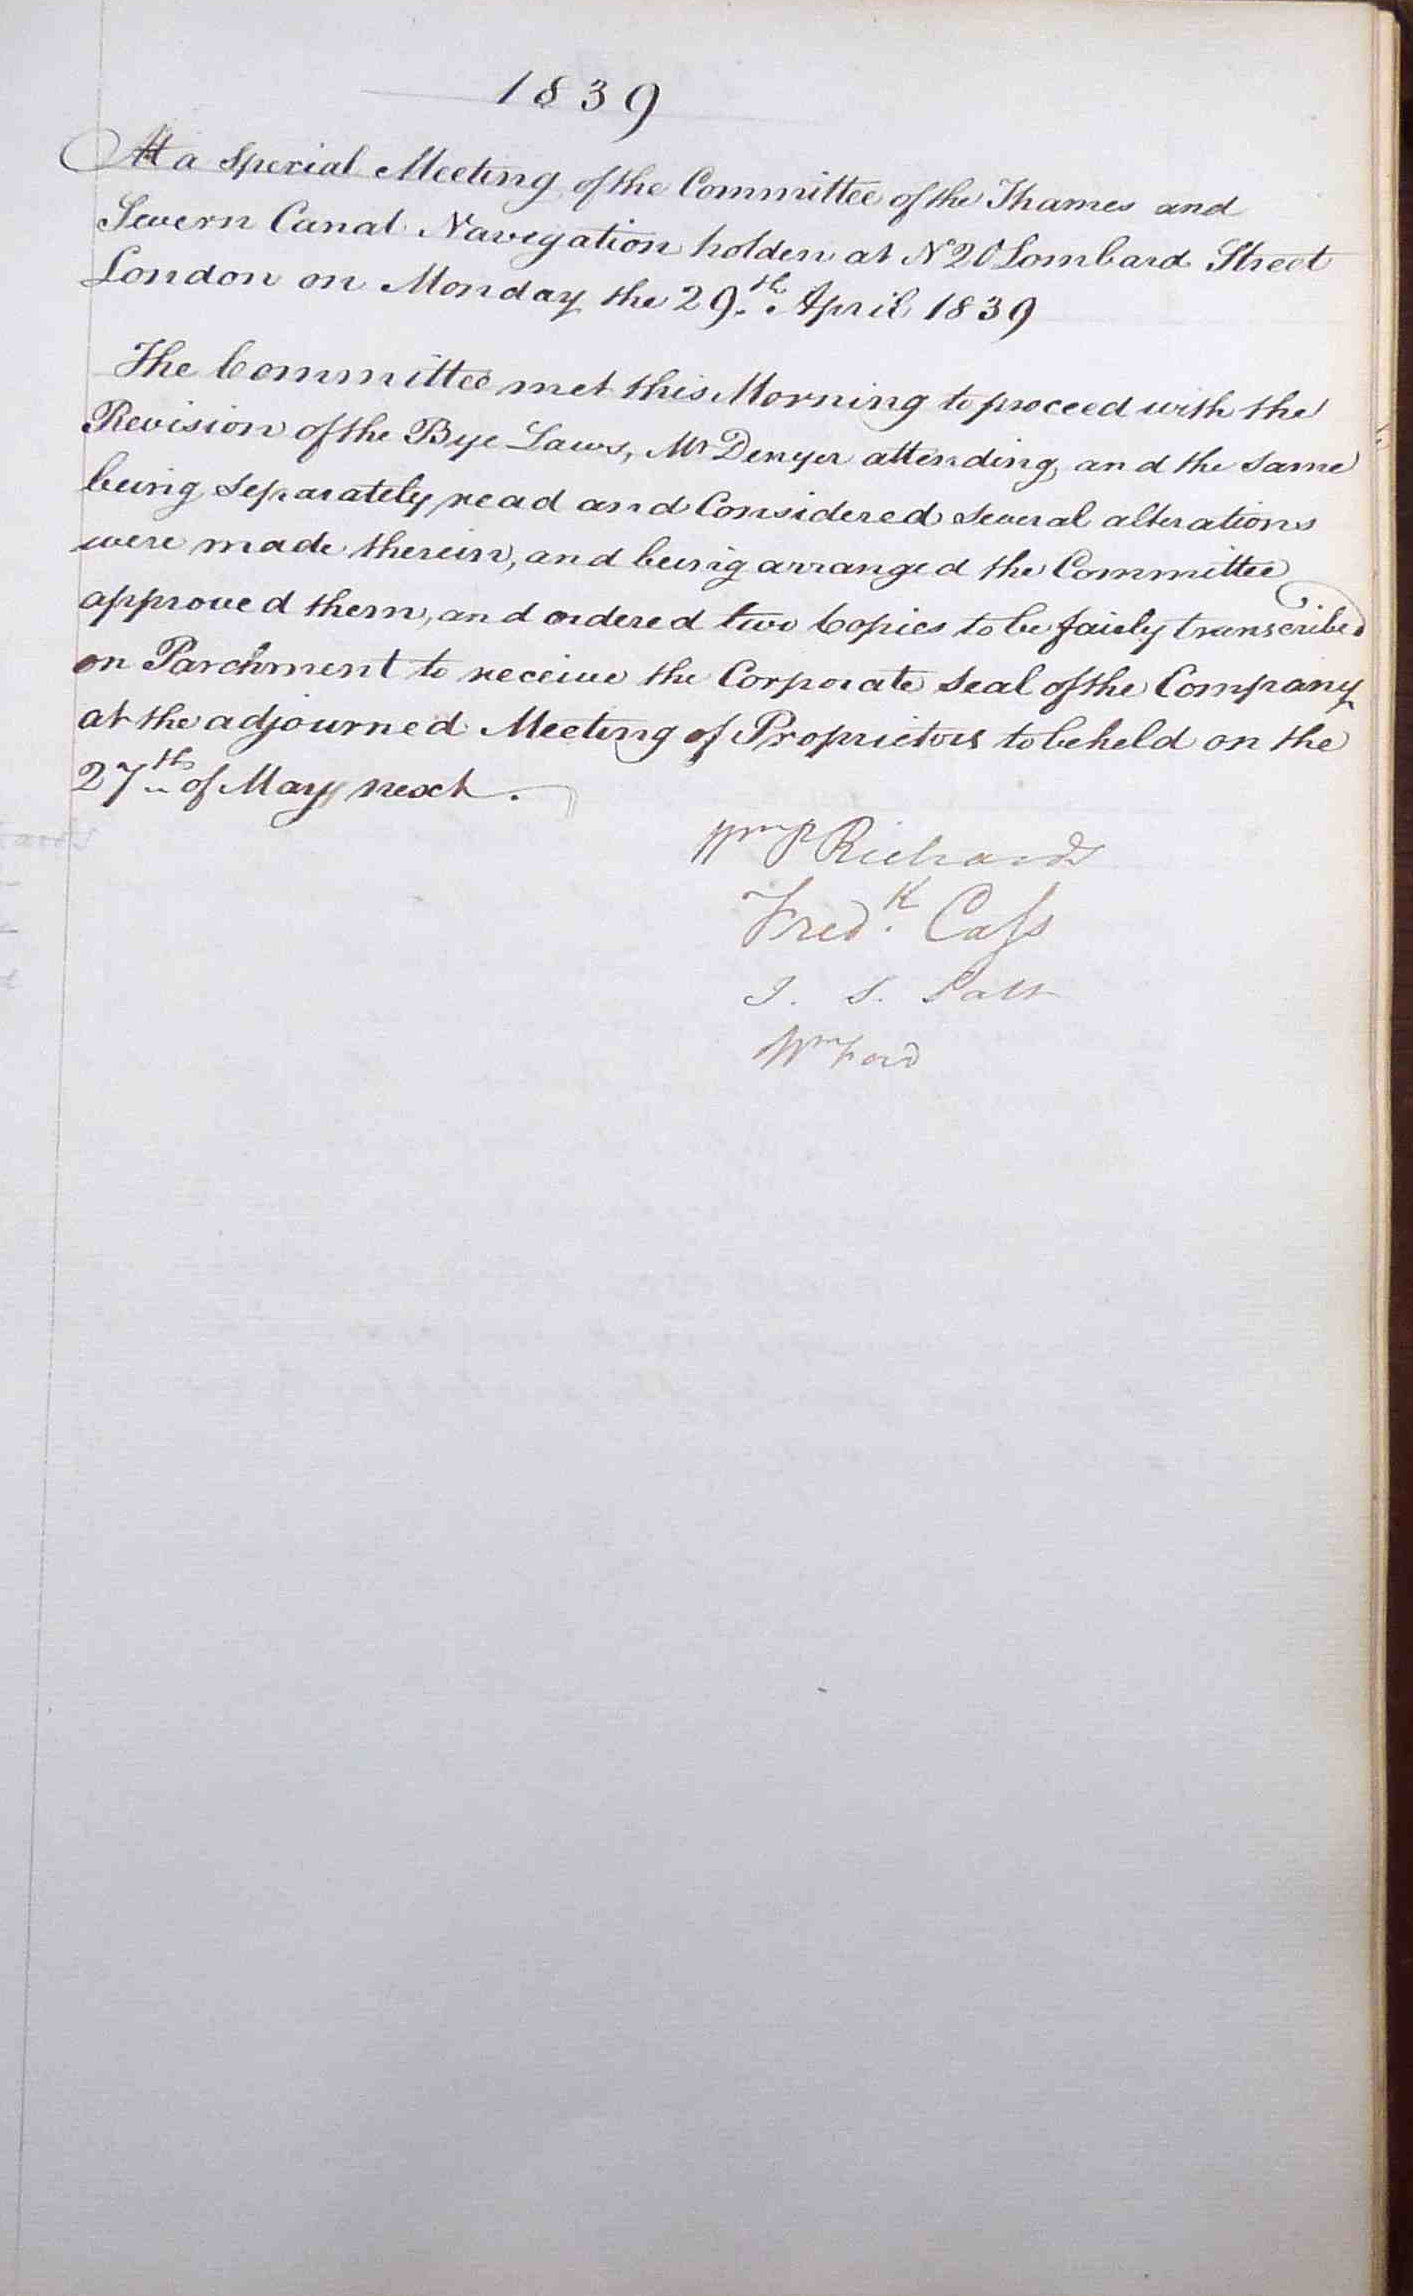 1839
At a Special Meeting of the Committee of the Thames and
Severn Canal Navigation holden at N 20 Lombard Street
London on Monday the 29th. April 1839
The Committee met this Morning to proceed with the
Revision of the Bye Laws, Mr Denyer attending, and the same
being separately read and Considered several alterations
were made therein, and being arranged the Committee
approved them, and ordered two Copies to be fairly transcribed
on Parchment to receive the Corporate Seal of the Company
at the adjourned Meeting of Proprietors to be held on the
27th of May next.
Wm P Richards
Fredk. Cass
J. S. Salt
Wm Ford